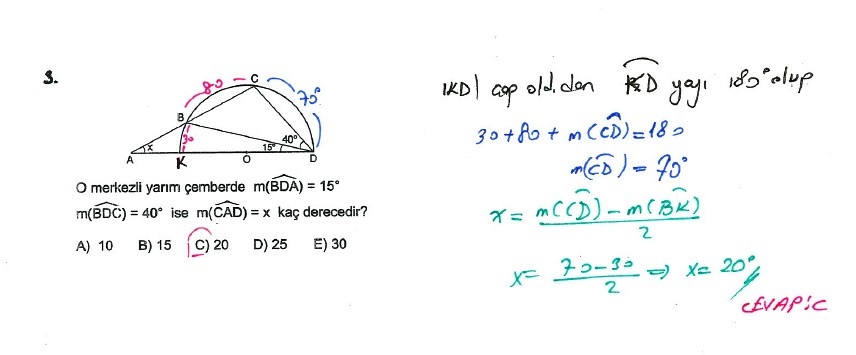 3.
80
C
70°
B
30
x
15°
40°
A
K
O
D
O merkezli yarım çemberde m(BDA) = 15°
m(BDC) = 40° ise m(CAD) = x kaç derecedir?
A) 10 B) 15 C) 20 D) 25 E) 30
|KD| çap old.dan KD yayı 180° olup
30+80+m(CD)=180
m(CD) = 70°
x = m(CD) - m(BK)
2
x = 70-30 ⇒ x = 20°
2
CEVAP: C